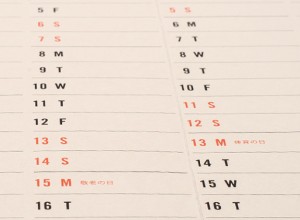 5 F
6 S
7 S
8 M
9 T
10 W
11 T
12 F
13 S
14 S
15 M 敬老の日
16 T
5 S
6 M
7 T
8 W
9 T
10 F
11 S
12 S
13 M 体育の日
14 T
15 W
16 T